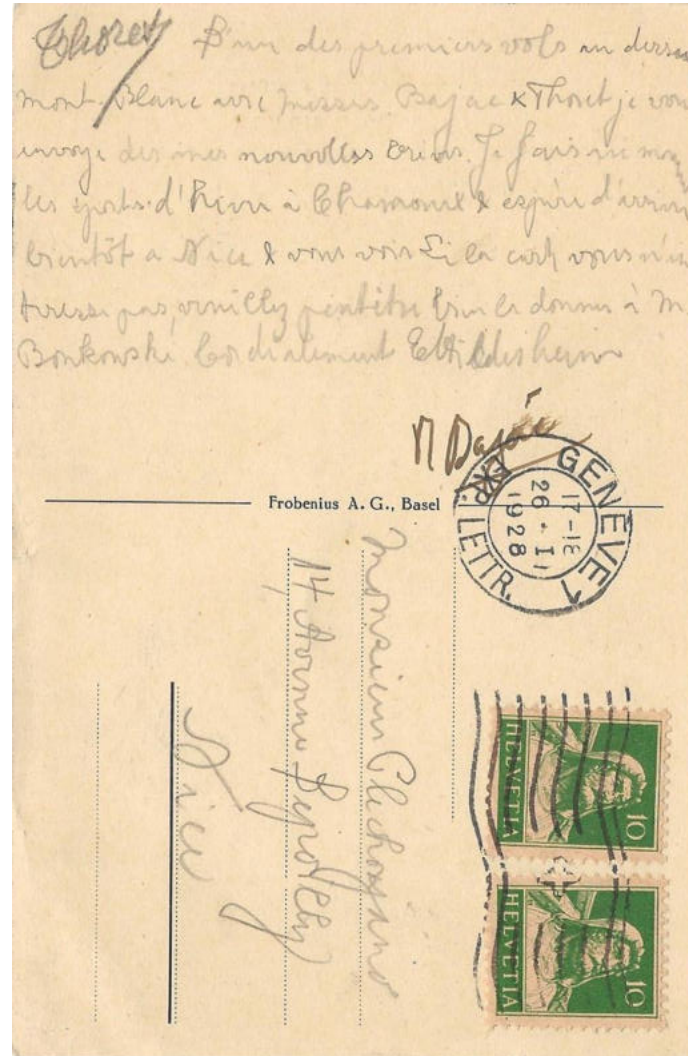 Thoret
D'un des premiers vols au dessu
mont-Blanc avec messrs. Bajac & Thoret je vous
envoye des mes nouvelles
les sports d'hiver à Chamonix & espère d'arriver
bientôt a Nice & vous voir Si la carte vous n'in
teresse pas, veuillez peutêtre bien la donner à M.
Bonkowski. Cordialement
M Bajac
Frobenius A. G., Basel
GENÈVE 1
17-18
26 . I
1928
EXP. LETTR.
Monsieur
14 Avenue
Nice
HELVETIA 10
HELVETIA 10